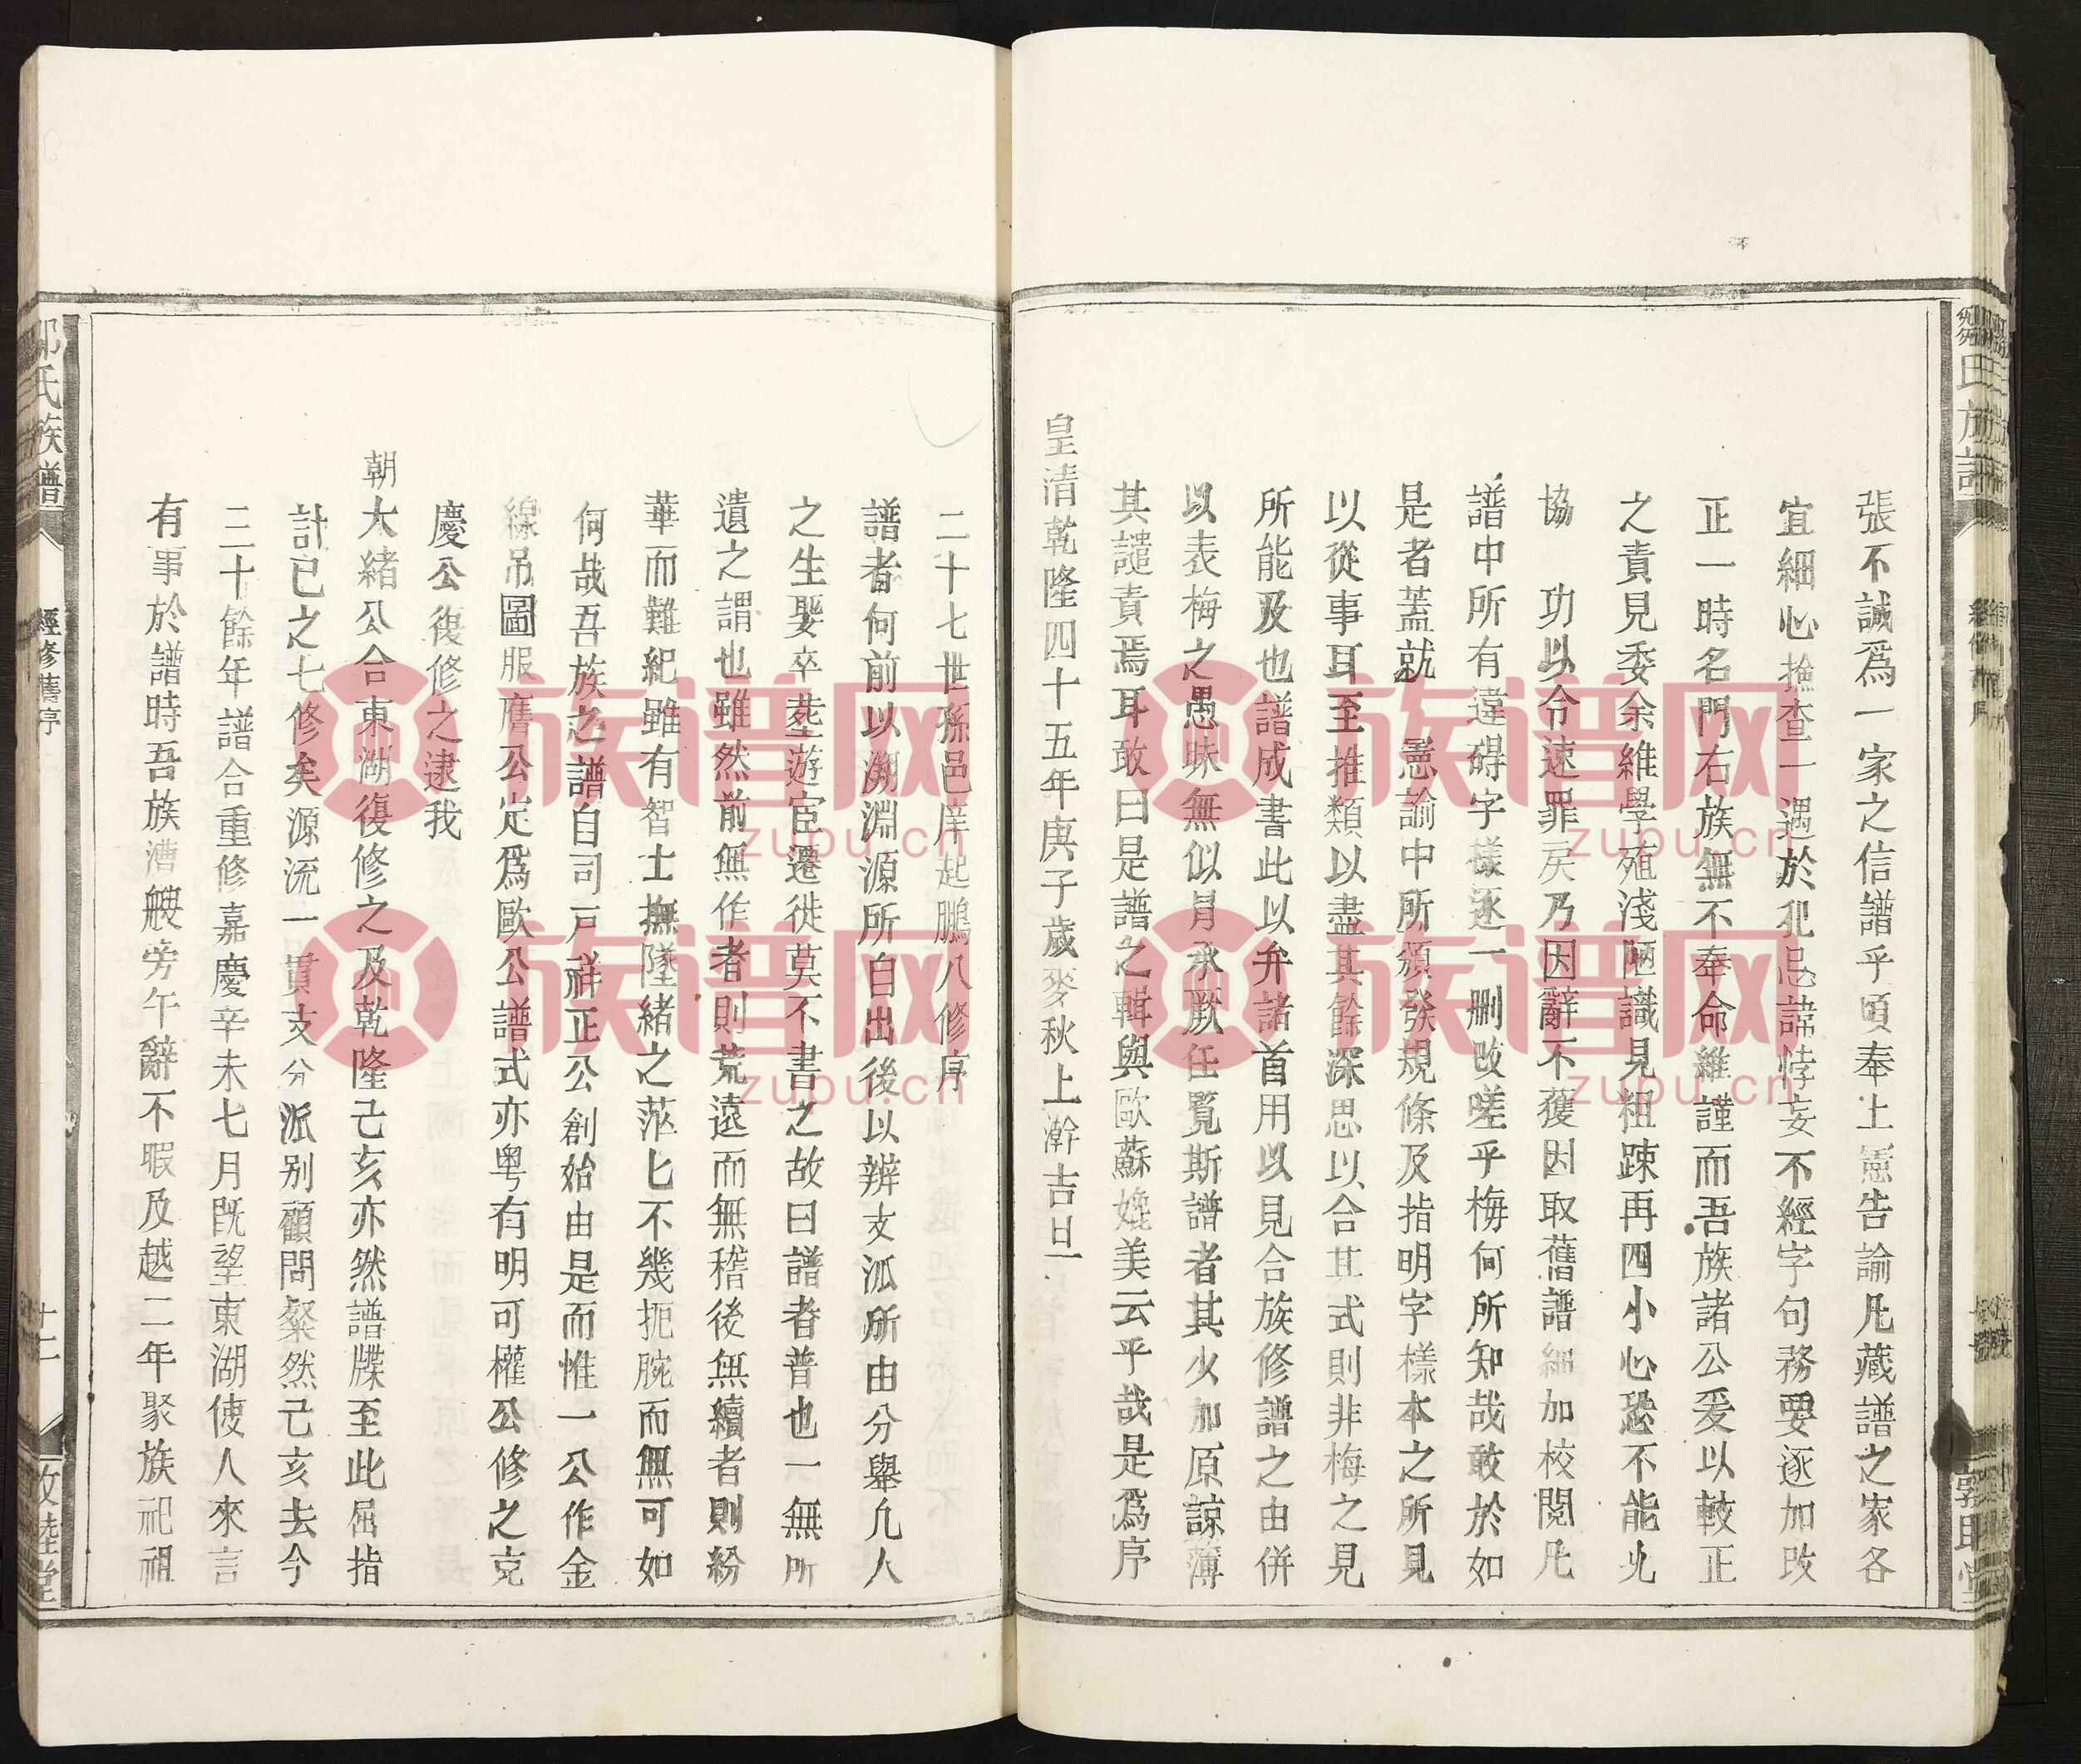 張不誠爲一家之信譜乎頃奉上憲告諭凡藏譜之家各
宜細心撿查一遇於犯忌諱悖妄不經字句務要逐加改
正一時名門右族無不奉命維謹而吾族諸公爰以較正
之責見委余維學殖淺陋識見粗踈再四小心恐不能允
協 功以令速罪戾乃因辭不獲因取舊譜細加校閱凡
譜中所有違碍字樣逐一刪改嗟乎梅何所知哉敢於如
是者蓋就 憲諭中所頒發規條及指明字樣本之所見
以從事耳至推類以盡其餘深思以合其式則非梅之見
所能及也譜成書此以弁諸首用以見合族修譜之由併
以表梅之愚昧無似冐承厥任覽斯譜者其少加原諒薄
其譴責焉耳敢曰是譜之輯與歐蘇媲美云乎哉是爲序
皇清乾隆四十五年庚子歲麥秋上澣吉旦
二十七世孫邑庠起鵬八修序
譜者何前以溯淵源所自出後以辨支派所由分舉凡人
之生娶卒塟遊宦遷徙莫不書之故曰譜者普也一無所
遺之謂也雖然前無作者則荒遠而無稽後無續者則紛
華而難紀雖有智士撫墜緒之茫匕不幾扼腕而無可如
何哉吾族之譜自司戶祥正公創始由是而惟一公作金
線吊圖服膺公定爲歐公譜式亦粤有明可權公修之克
慶公復修之逮我
朝大緒公合東湖復修之及乾隆己亥亦然譜牒至此屈指
計已之七修矣源流一貫支分派别顧問粲然己亥去今
三十餘年譜合重修嘉慶辛未七月旣望東湖使人來言
有事於譜時吾族漕艘旁午辭不暇及越二年聚族祀祖
氏族譜
經修舊序
十二
敦睦堂